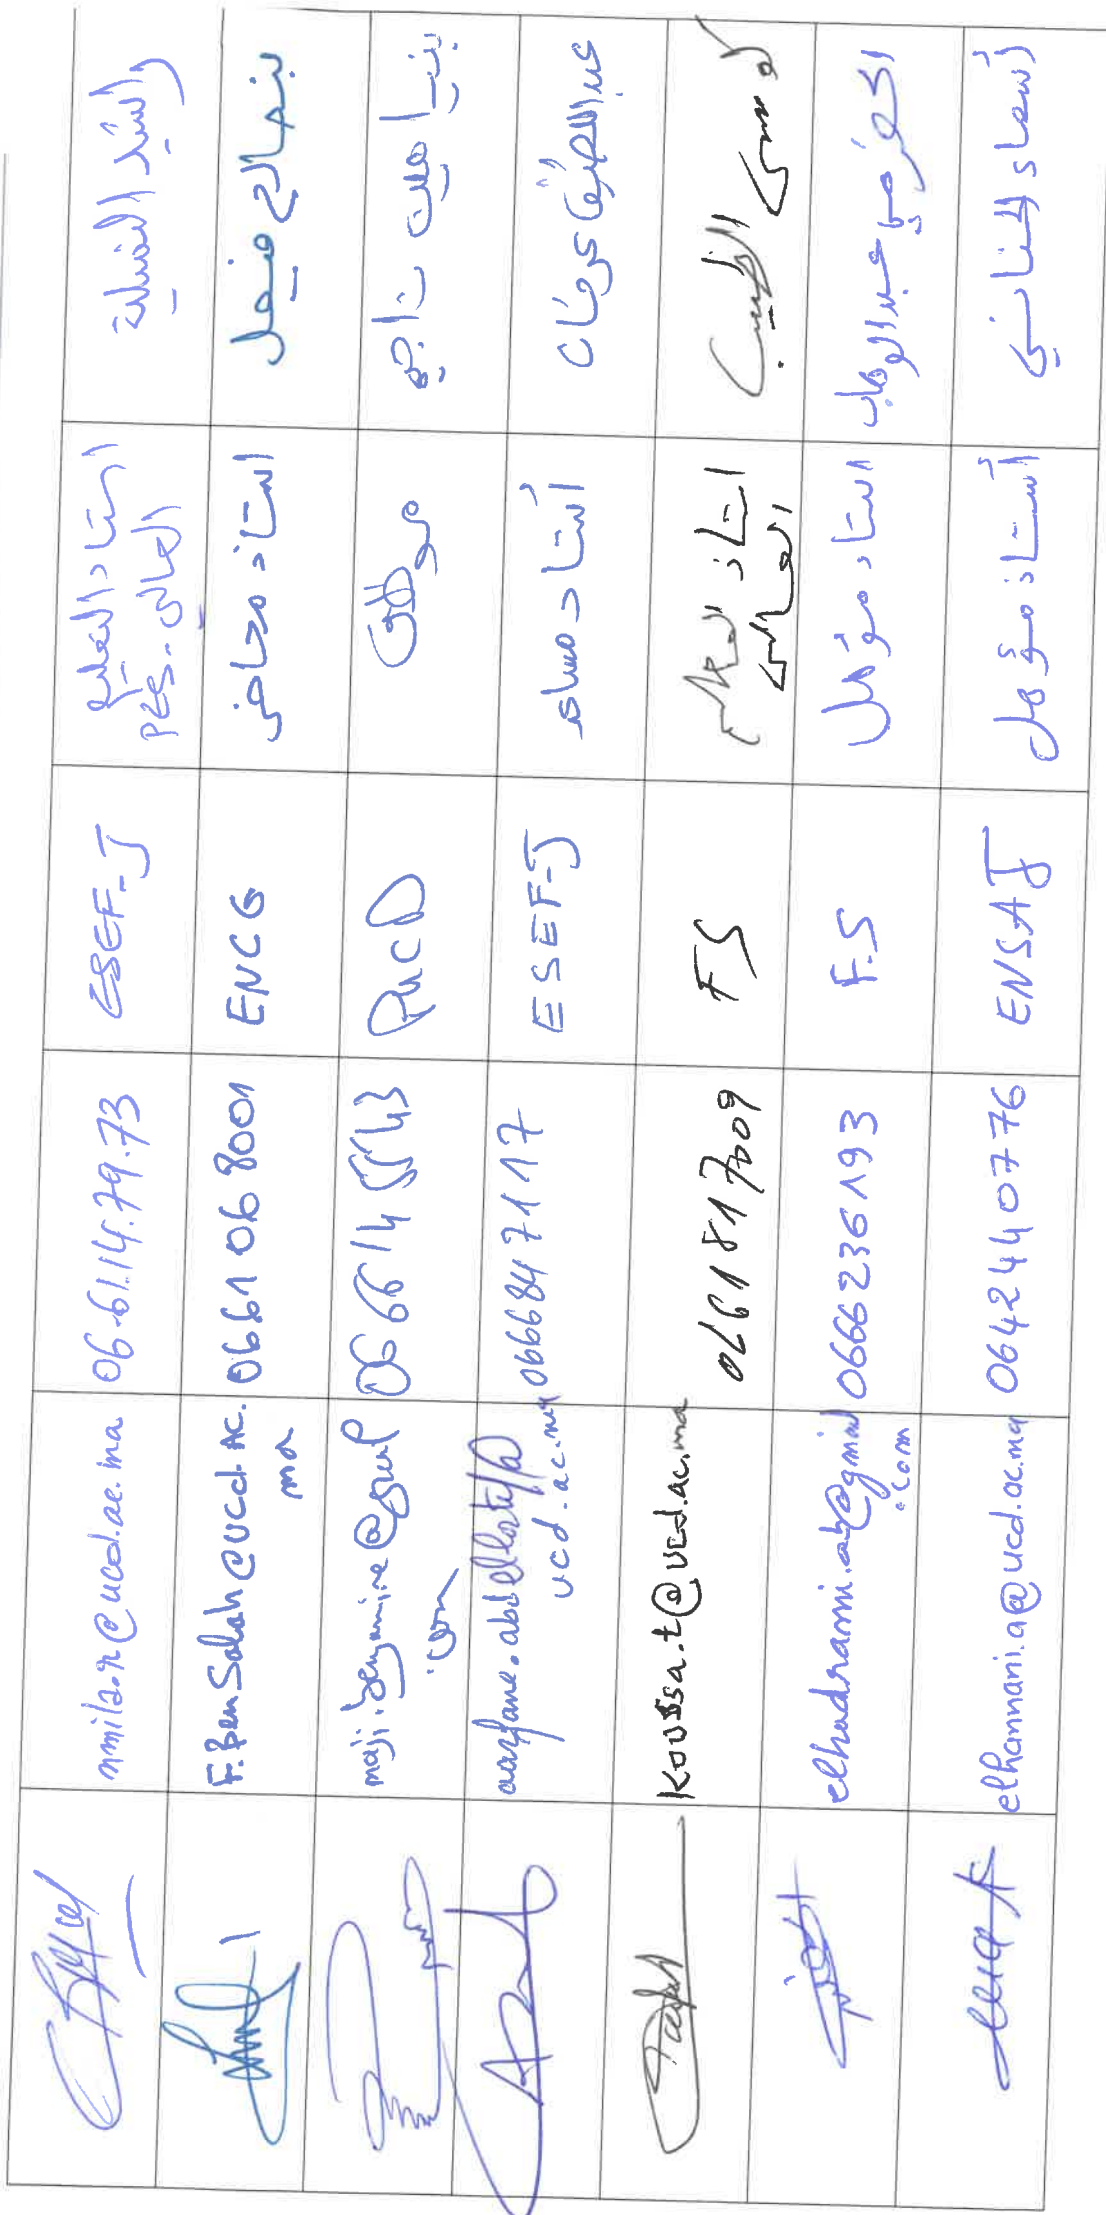 والسيد الفضيلة
استاذ التعليم
العالي - PES
ESEF-J
06.61.14.79.73
بنصالح فيصل
استاذ محاضر
ENCG
0661068001
F.BenSalah@ucd.ac.
ma
بنيامين ناجي
موظف
PUCD
0666145543
maji.benyamine@gmail
.com
عبد اللطيف عرفان
أستاذ مساعد
ESEF-J
0666847117
aarfane.abdellatif@
ucd.ac.ma
كوسى الطيب
استاذ التعليم
العالي
FS
0661817009
Koussa.t@ucd.ac.ma
الحضرمي عبد الوهاب
استاذ مؤهل
F.S
0666236193
elhadrami.ab@gmail
.com
أسماء الحناني
أستاذ مؤهل
ENSAJ
0642440776
elhannani.a@ucd.ac.ma